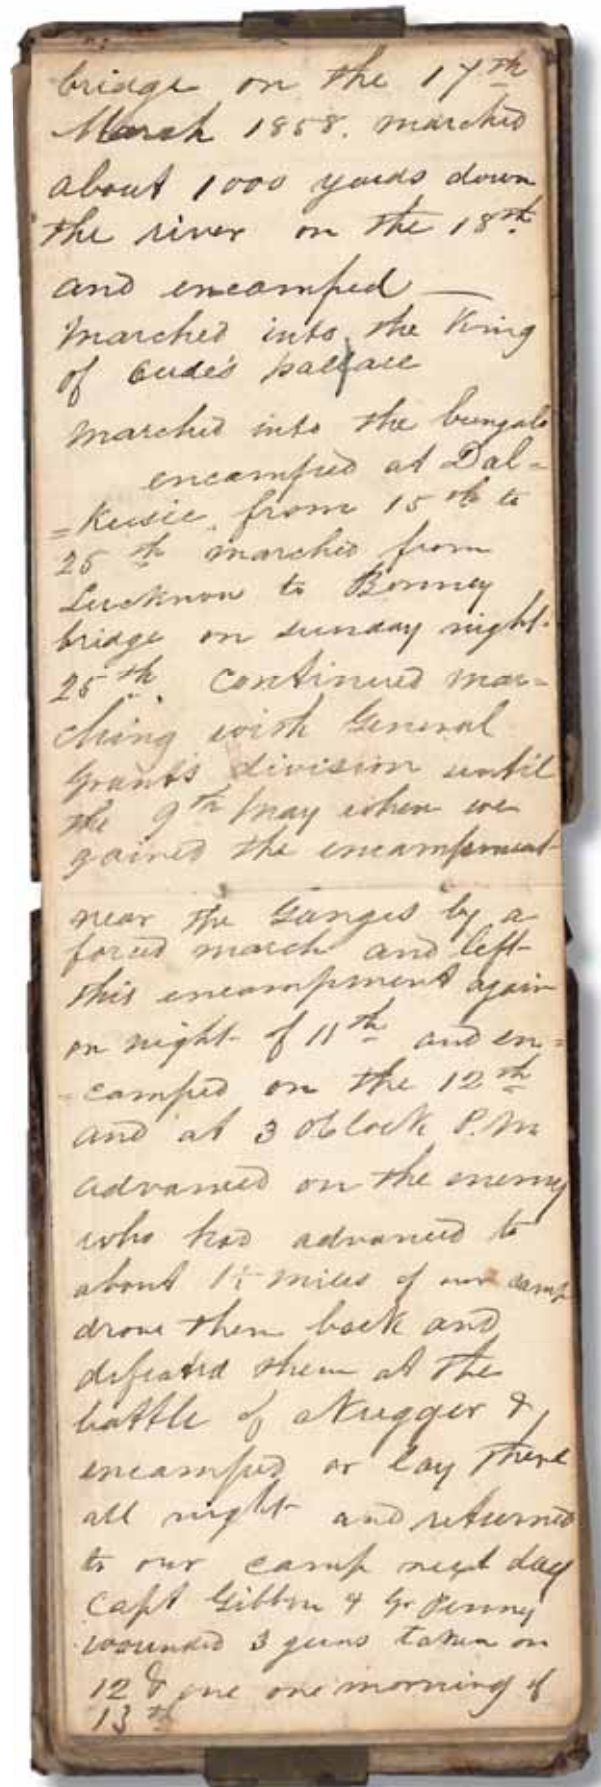 bridge on the 17th
March 1858. marched
about 1000 yards down
the river on the 18th.
and encamped —
Marched into the King
of Oude's pallace
Marched into the bungalo
encamped at Dal=
=Kusie. from 15th to
25th marched from
Lucknow to Bonney
bridge on sunday night.
25th. continued mar=
ching with General
Grant's division until
the 9th May when we
gained the encampment
near the Ganges by a
forced march and left
this encampment again
on night of 11th and en=
=camped on the 12th
and at 3 oClock P.M
advanced on the enemy
who had advanced to
about 1½ miles of our camp
drove them back and
defeated them at the
battle of Nugger &
encamped or lay there
all night and returned
to our camp next day
Capt Gibbon & Gr Penny
wounded 3 guns taken on
12 & one one morning of
13th